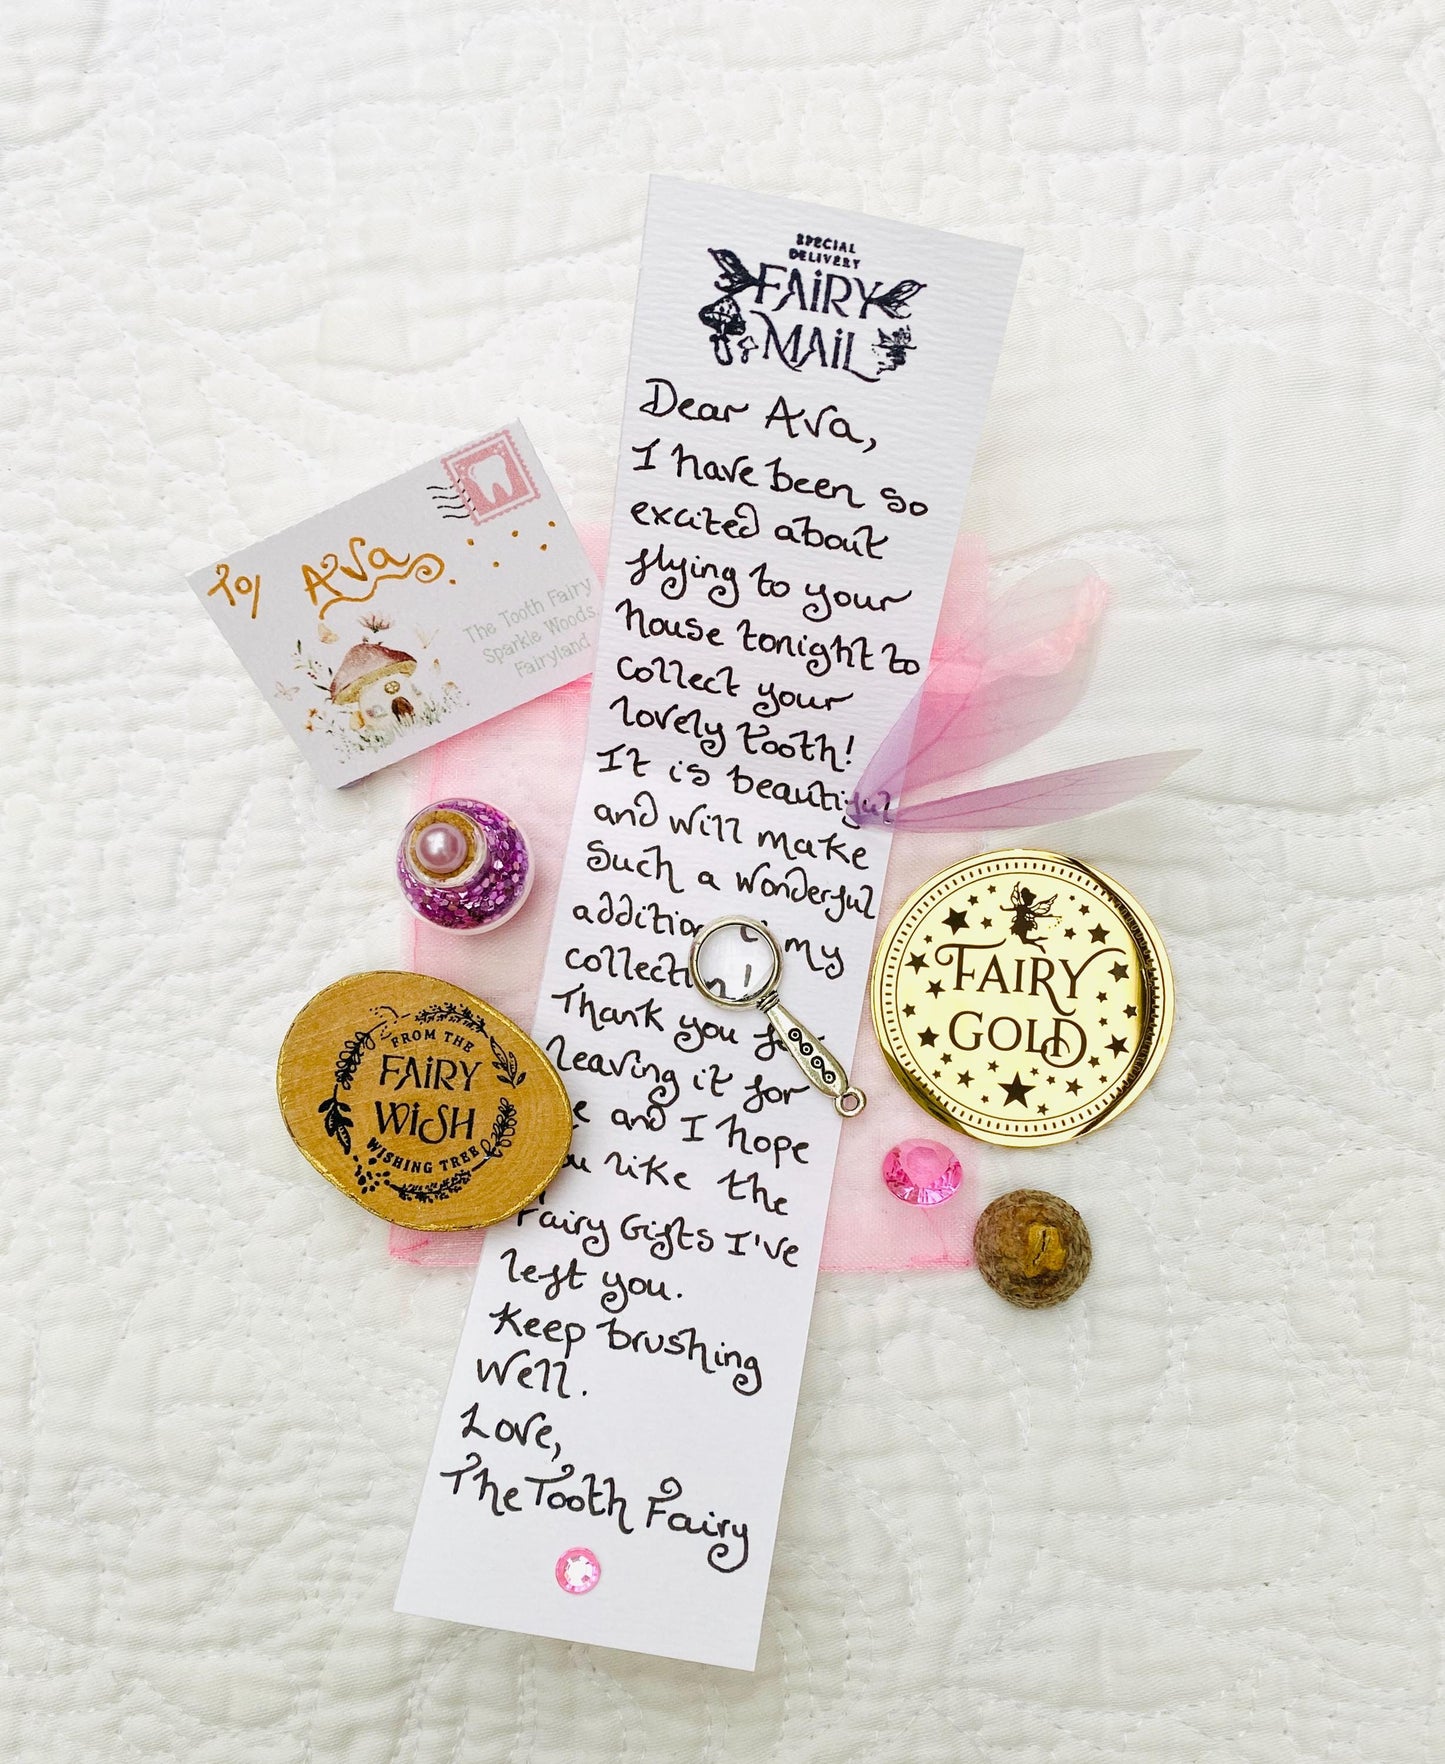 SPECIAL
DELIVERY
FAIRY
MAIL
Dear Ava,
I have been so
excited about
flying to your
house tonight to
collect your
lovely tooth!
It is beautiful
and will make
such a wonderful
addition my
collecti !
Thank you
leaving it for
and I hope
like the
Fairy Gifts I've
left you.
Keep brushing
well.
Love,
The Tooth Fairy
To/ Ava
The Tooth Fairy
Sparkle Woods,
Fairyland
FROM THE
FAIRY
WISH
WISHING TREE
FAIRY
GOLD